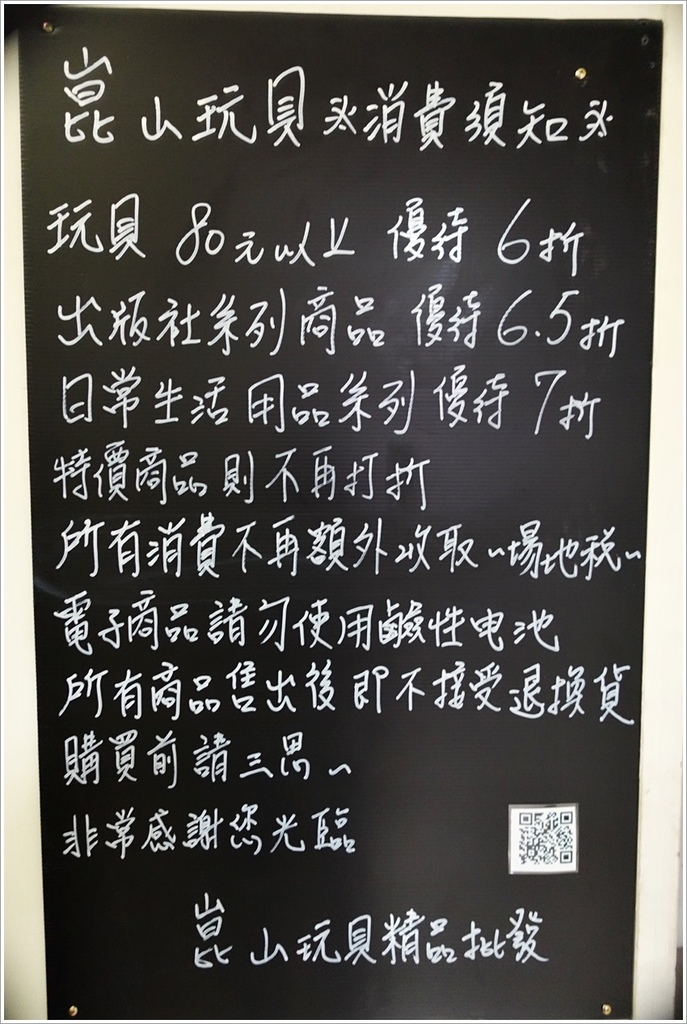 崑山玩具※消費須知※
玩具 80元以上 優待 6折
出版社系列商品 優待 6.5折
日常生活用品系列優待 7折
特價商品則不再打折
所有消費不再額外收取~場地稅~
電子商品請勿使用鹼性电池
所有商品售出後即不接受退換貨
購買前請三思~
非常感謝您光臨
崑山玩具精品批發